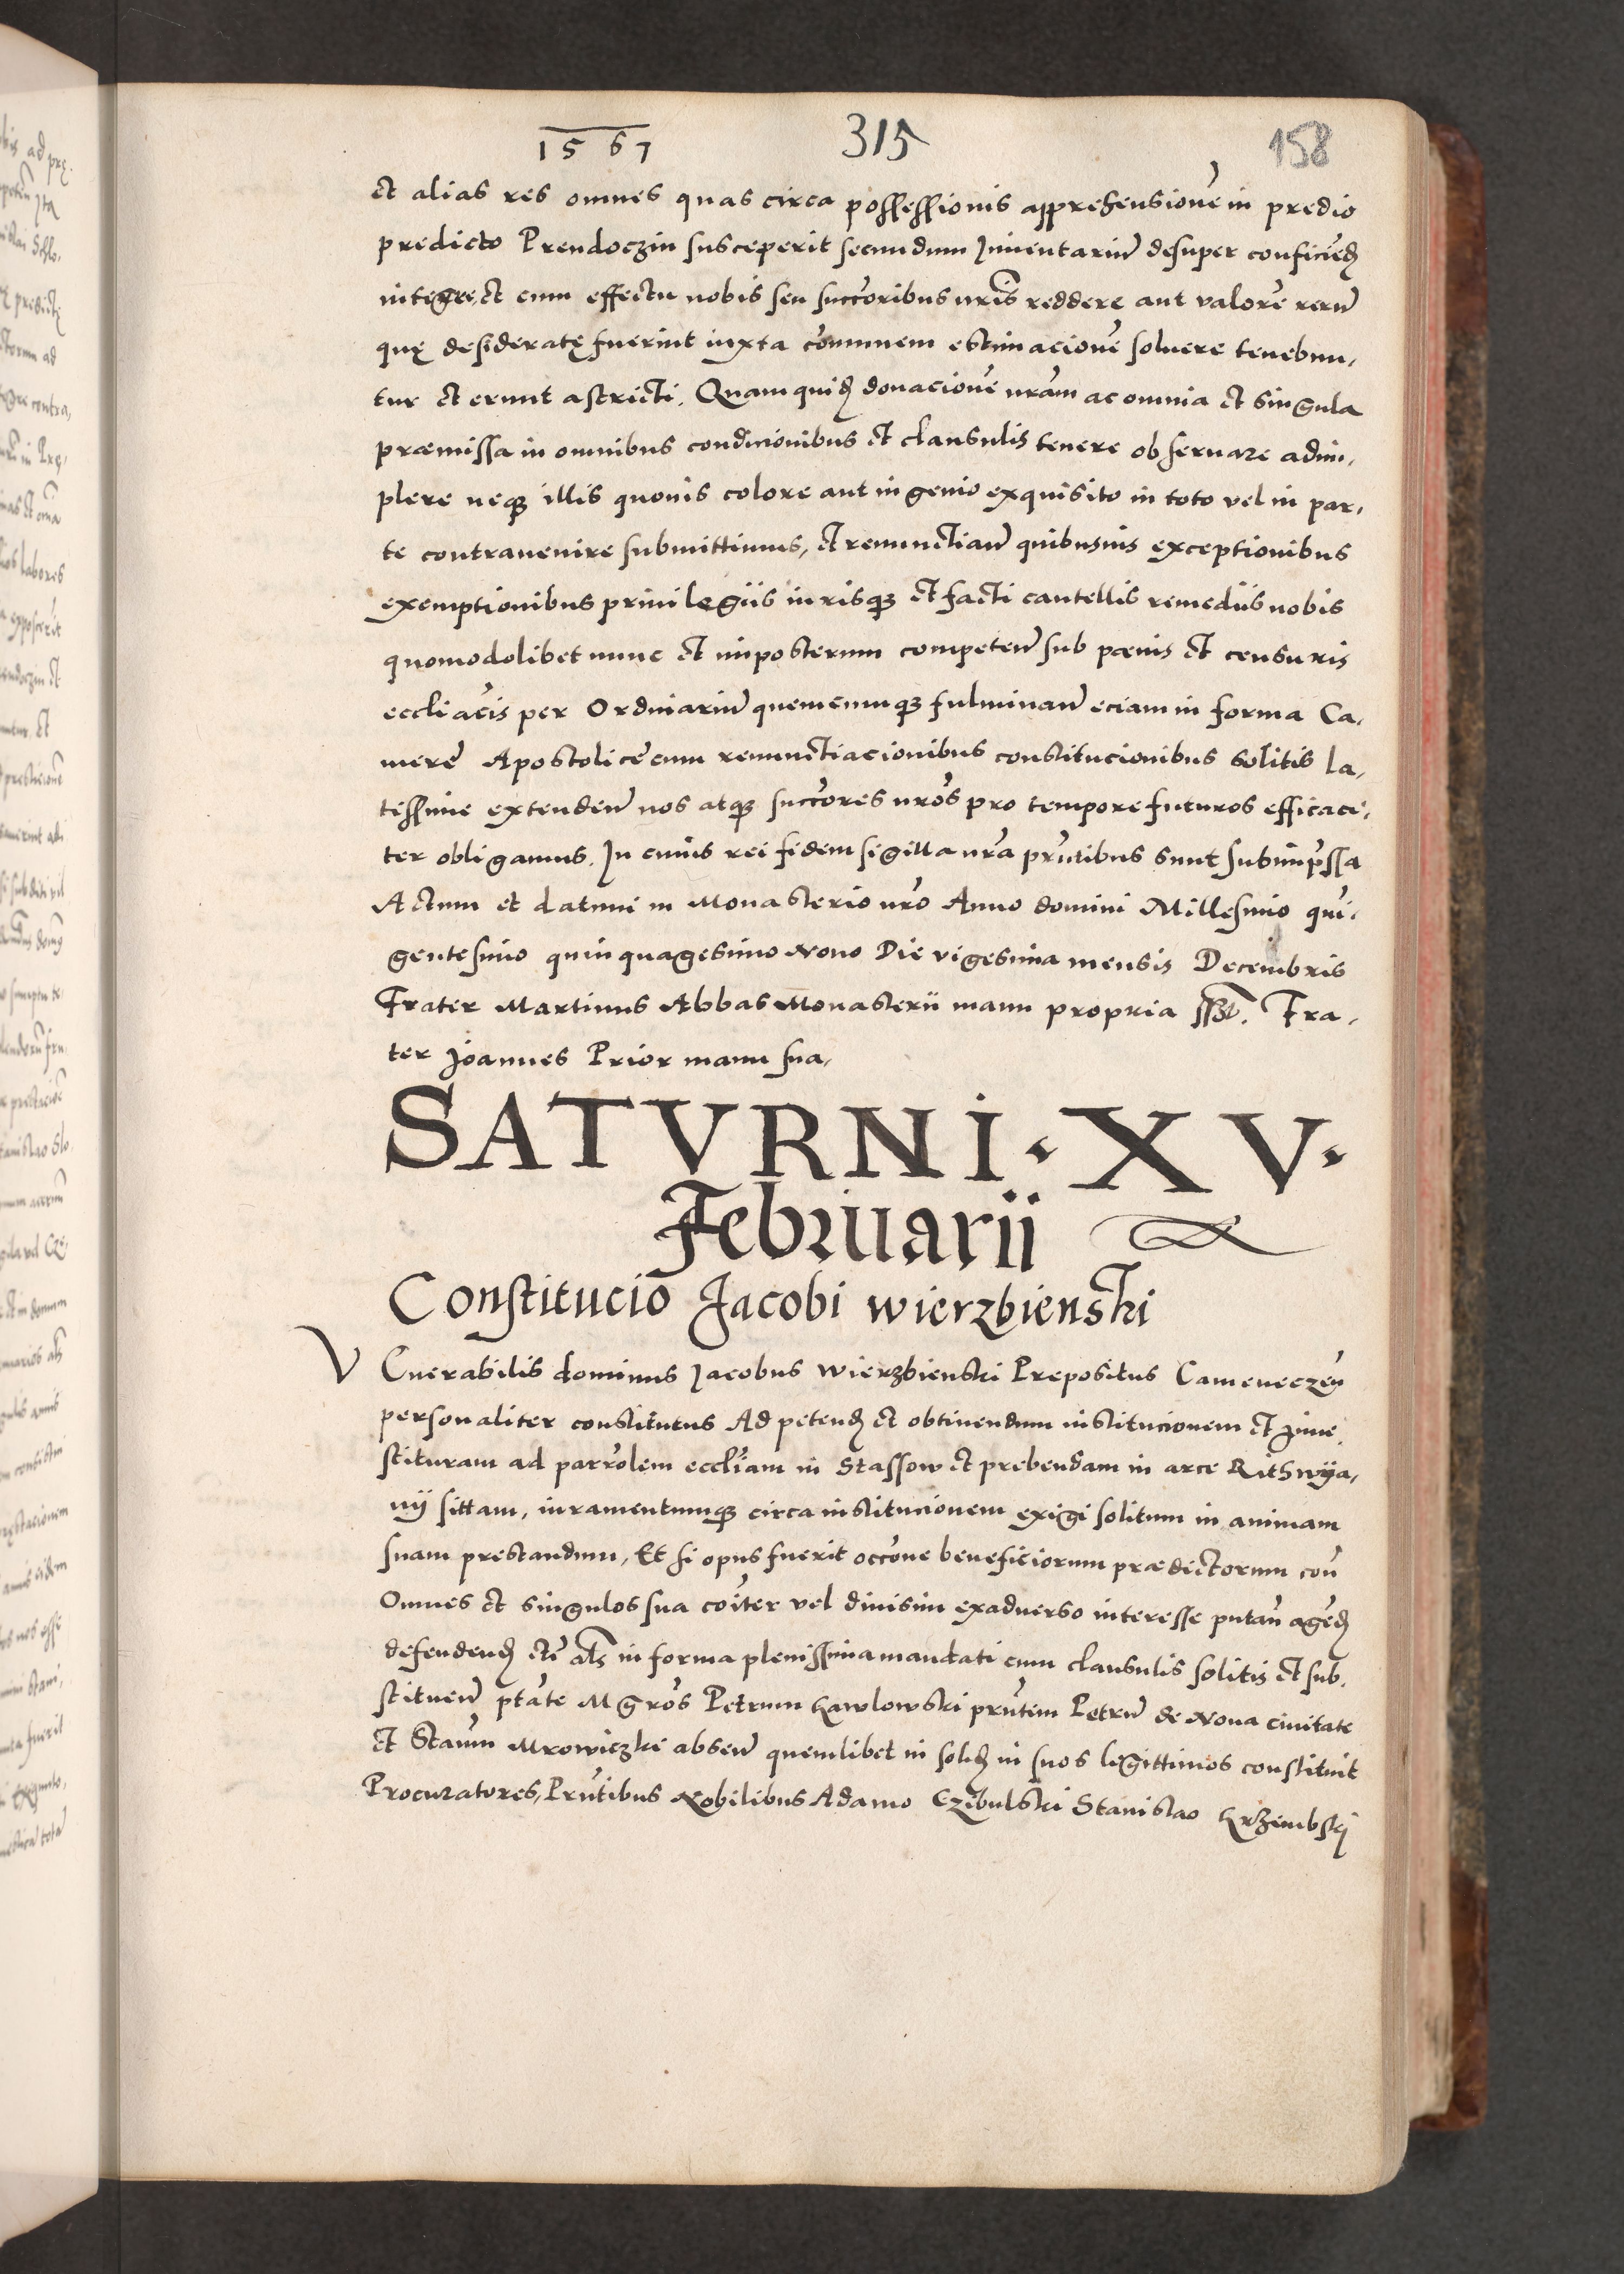 1567 315 158
et alias res omnes quas circa possessionis apprehensionē in predio
predicto Prendoczin susceperit secundum Inuentariū desuper conficieñ
integre, et cum effectu nobis seu succōribus nr̄is reddere aut valorē rerū
quę desideratę fuerint iuxta cōmunem estimacionē soluere tenebun,
tur et erunt astricti. Quam quid donacionē nrām ac omnia et singula
præmissa in omnibus condicionibus et clausulis tenere obseruare adim,
plere neq illis quouis colore aut ingenio exquisito in toto vel in par,
te contrauenire submittimus, et renunctiañ quibusuis exceptionibus
exemptionibus priuilegiis iurisq et facti cautellis remediis nobis
quomodolibet nunc et imposterum competeñ sub pœnis et censuris
eccliācis per Ordinariū quemcunq fulminañ eciam in forma Ca,
merę Apostolicę cum renunctiacionibus constitucionibus solitis la,
tissime extendeñ nos atq succōres nrōs pro tempore futuros efficaci,
ter obligamus. In cuius rei fidem sigilla nrā prn̄tibus sunt subimpr̄ssa
Actum et datum in Monasterio nrō Anno domini Millesimo qui,
gentesimo quinquagesimo Nono Die vigesima mensis Decembris
Frater Martinus Abbas Monasterii manu propria sst. Fra,
ter Joannes Prior manu sua,
SATVRNI · XV ·
Februarii
Constitucio Jacobi Wierzbienski
VEnerabilis dominus Jacobus Wierzbienski Prepositus Cameneczeñ
personaliter constitutus Ad petend et obtinendum institucionem et Inue,
stituram ad parrōlem eccliam in Stassow et prebendam in arce Rithwya,
nÿ sittam, iuramentumq circa institucionem exigi solitum in animam
suam prestandum, Et si opus fuerit occōne beneficiorum prædictorum coñ
Omnes et singulos sua cōiter vel diuisim exaduerso interesse putañ agend
defendend etc̄ als in forma plenissima mandati cum clausulis solitis et sub,
stitueñ ptāte Mgrōs Petrum Kawlowski prn̄tem Petrū de Noua ciuitate
et Stanm̄ Mrowiczki abseñ quemlibet in solid in suos legittimos constituit
Procuratores, Prn̄tibus Nobilibus Adamo Czibulski Stanislao Krzembskj